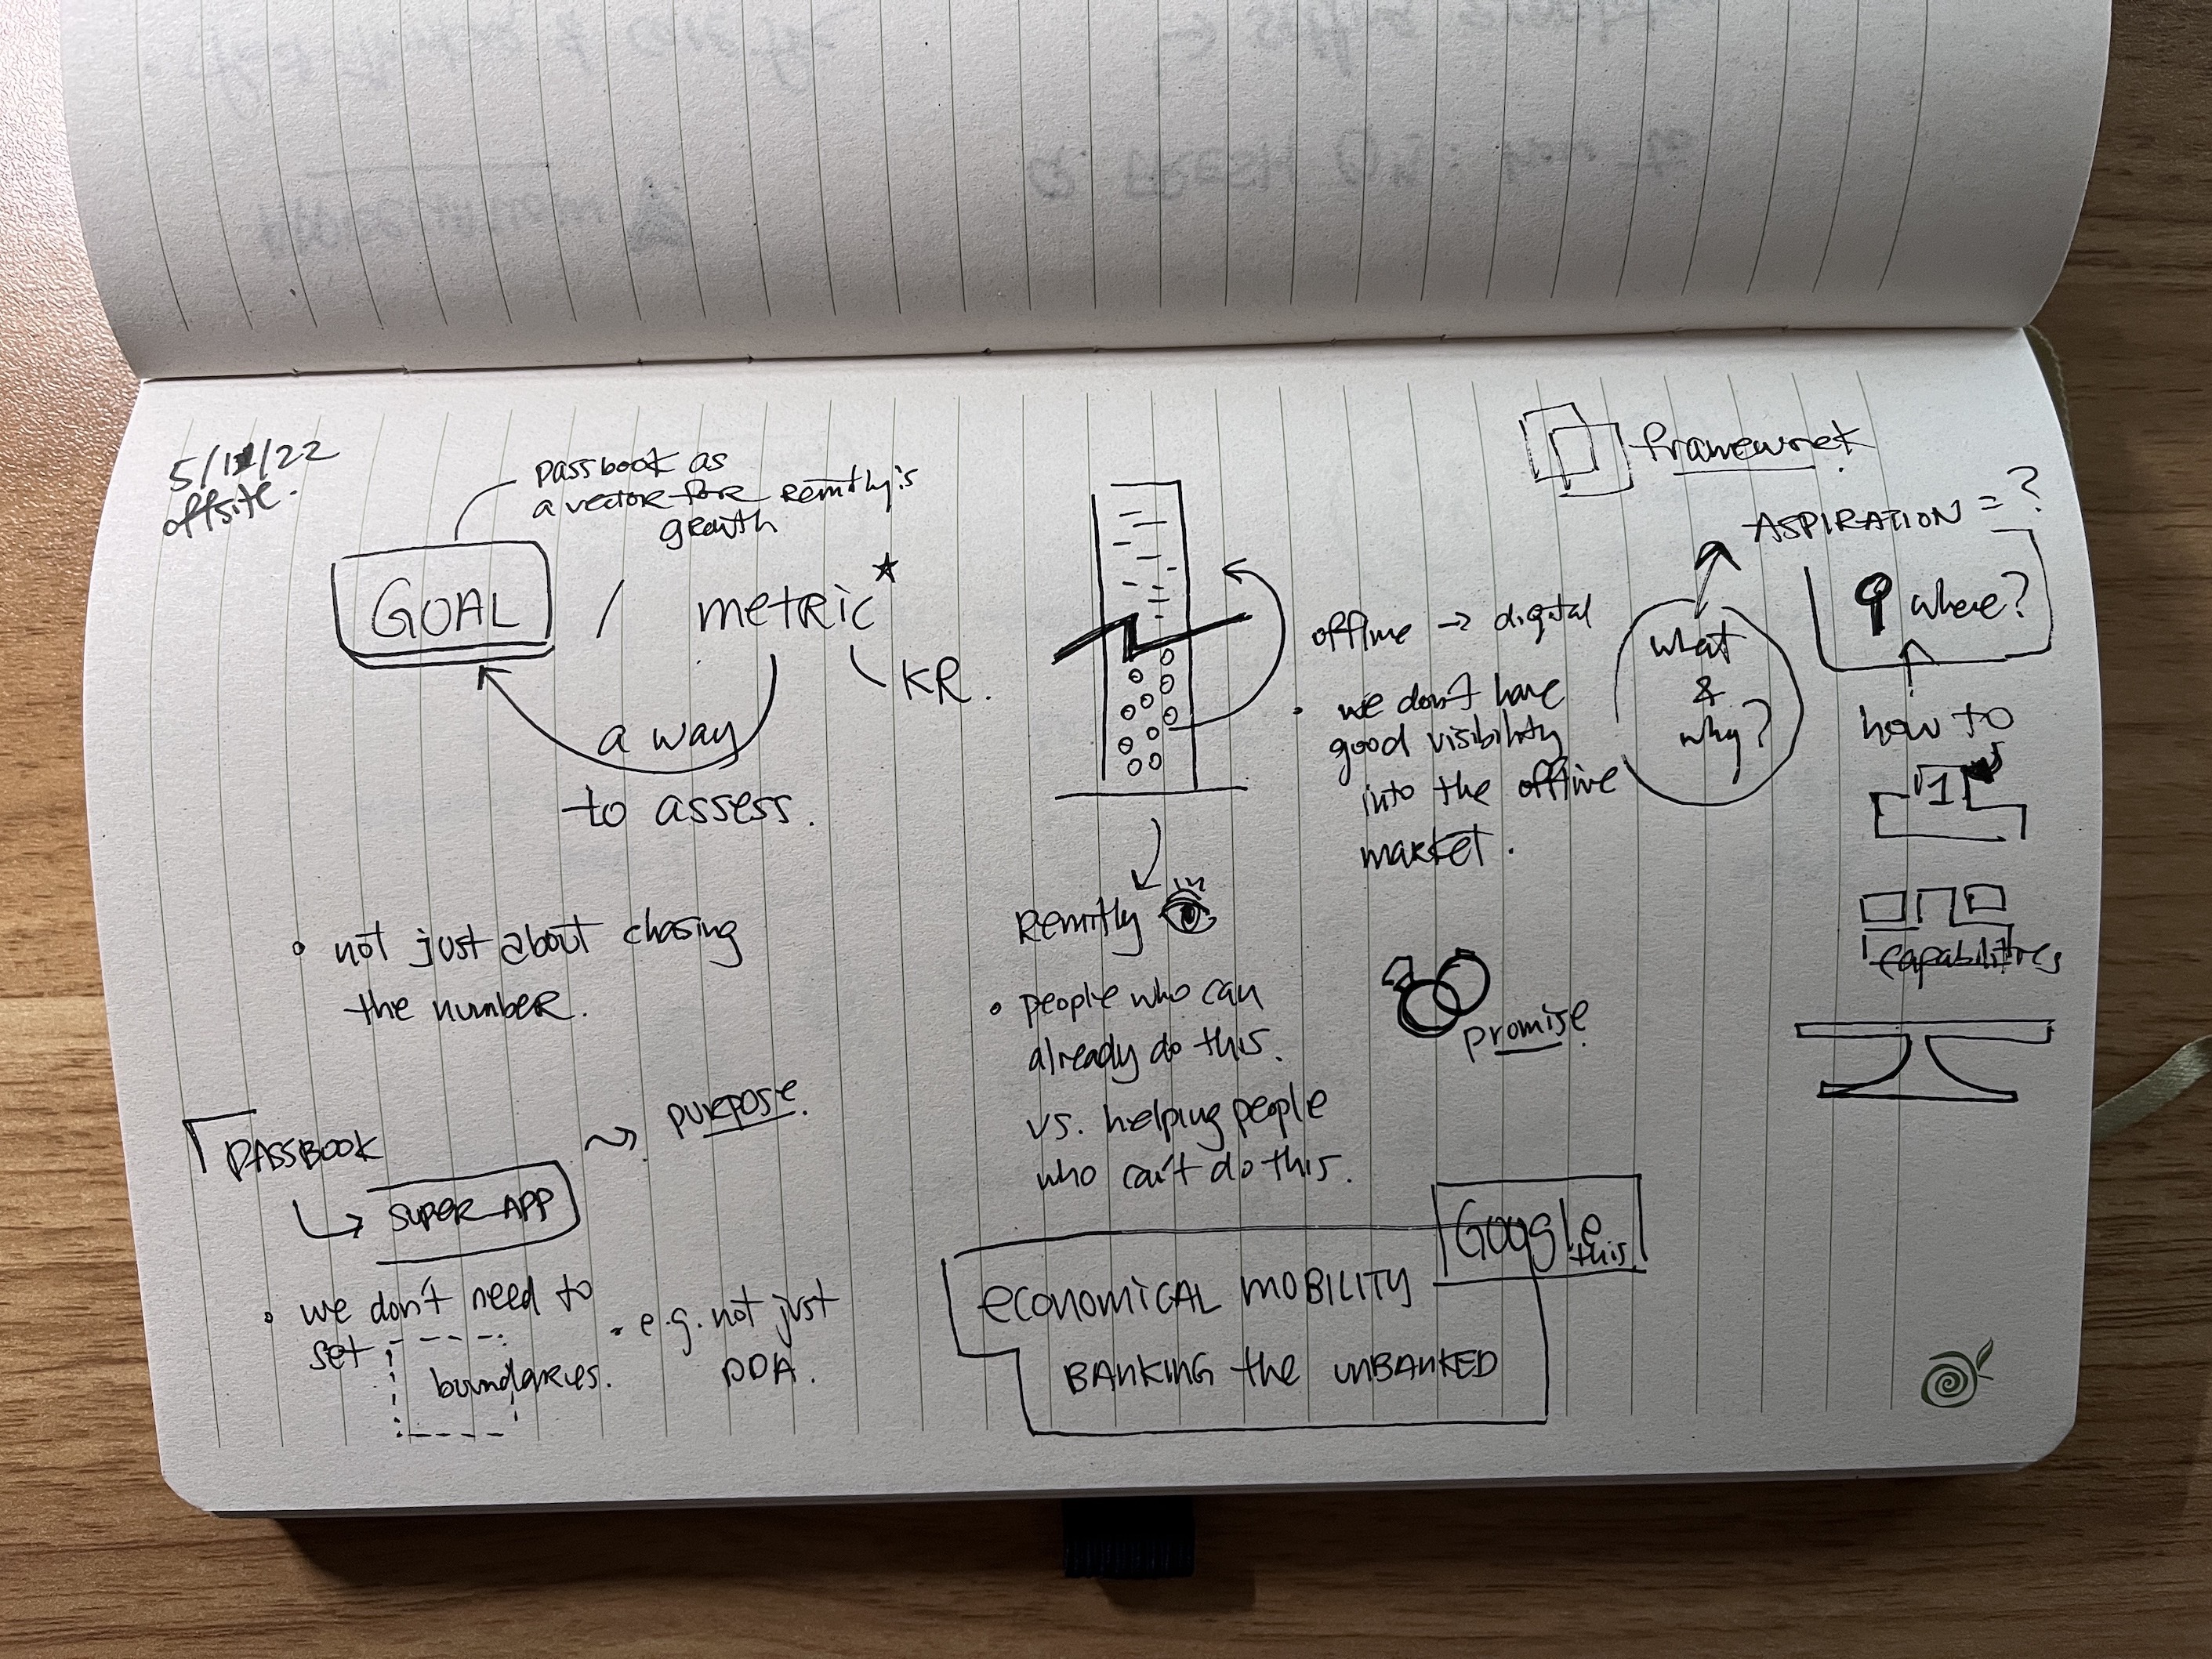 offsite.
passbook as
a vector for Remitly's
growth
GOAL / metric*
KR.
a way
to assess.
• not just about chasing
the number.
PASSBOOK
purpose.
SUPER APP
• we don't need to
set
boundaries.
• e.g. not just
DDA.
offline → digital
• we don't have
good visibility
into the offline
market.
Remitly
• people who can
already do this.
vs. helping people
who can't do this.
promise.
Google
this
economical MOBILITY
BANKING the UNBANKED
framework
ASPIRATION = ?
what
&
why?
where?
how to
1
capabilities